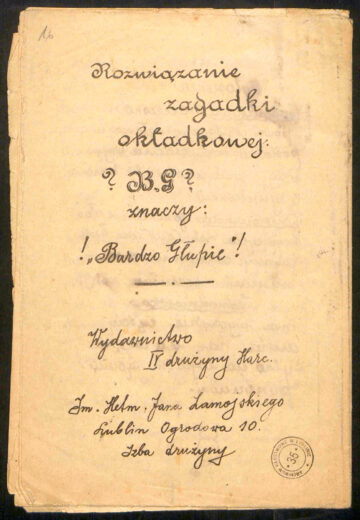 16
Rozwiązanie
zagadki
okładkowej:
? B.G ?
znaczy:
! „Bardzo Głupie" !
Wydawnictwo
IV drużyny Harc.
Im. Hetm. Jana Zamojskiego
Lublin Ogrodowa 10.
Izba drużyny
36